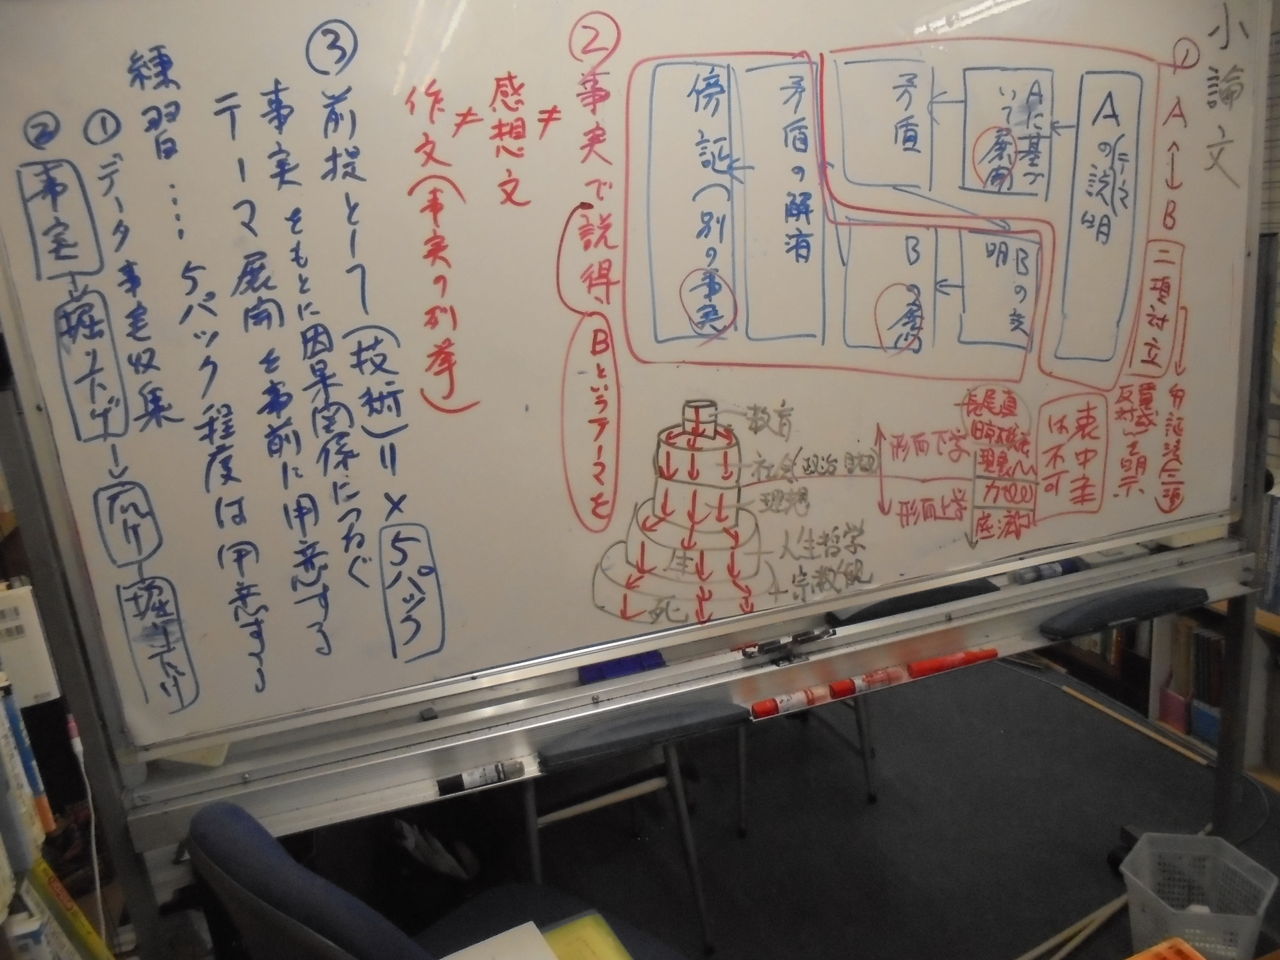 小論文
① A↔B
二項対立
反対して明示
表中圭
は不可
Aの説明
(テーマ)
Aに基づ
いて展開
矛盾
Bの説
明
Bの展開
矛盾の解消
傍証(別の事実
② 事実で説得、
Bというテーマを
≠
感想文
≠
作文(事実の列挙)
教育
社会(政治
理想
人生哲学
宗教観
生
死
形而下学
形而上学
③ 前提として(技術)
×
5パック
事実をもとに因果関係につなぐ
テーマ展開を事前に用意する
5パック程度は用意する
練習……
① データ事実収集
② 事実→掘り下げ→